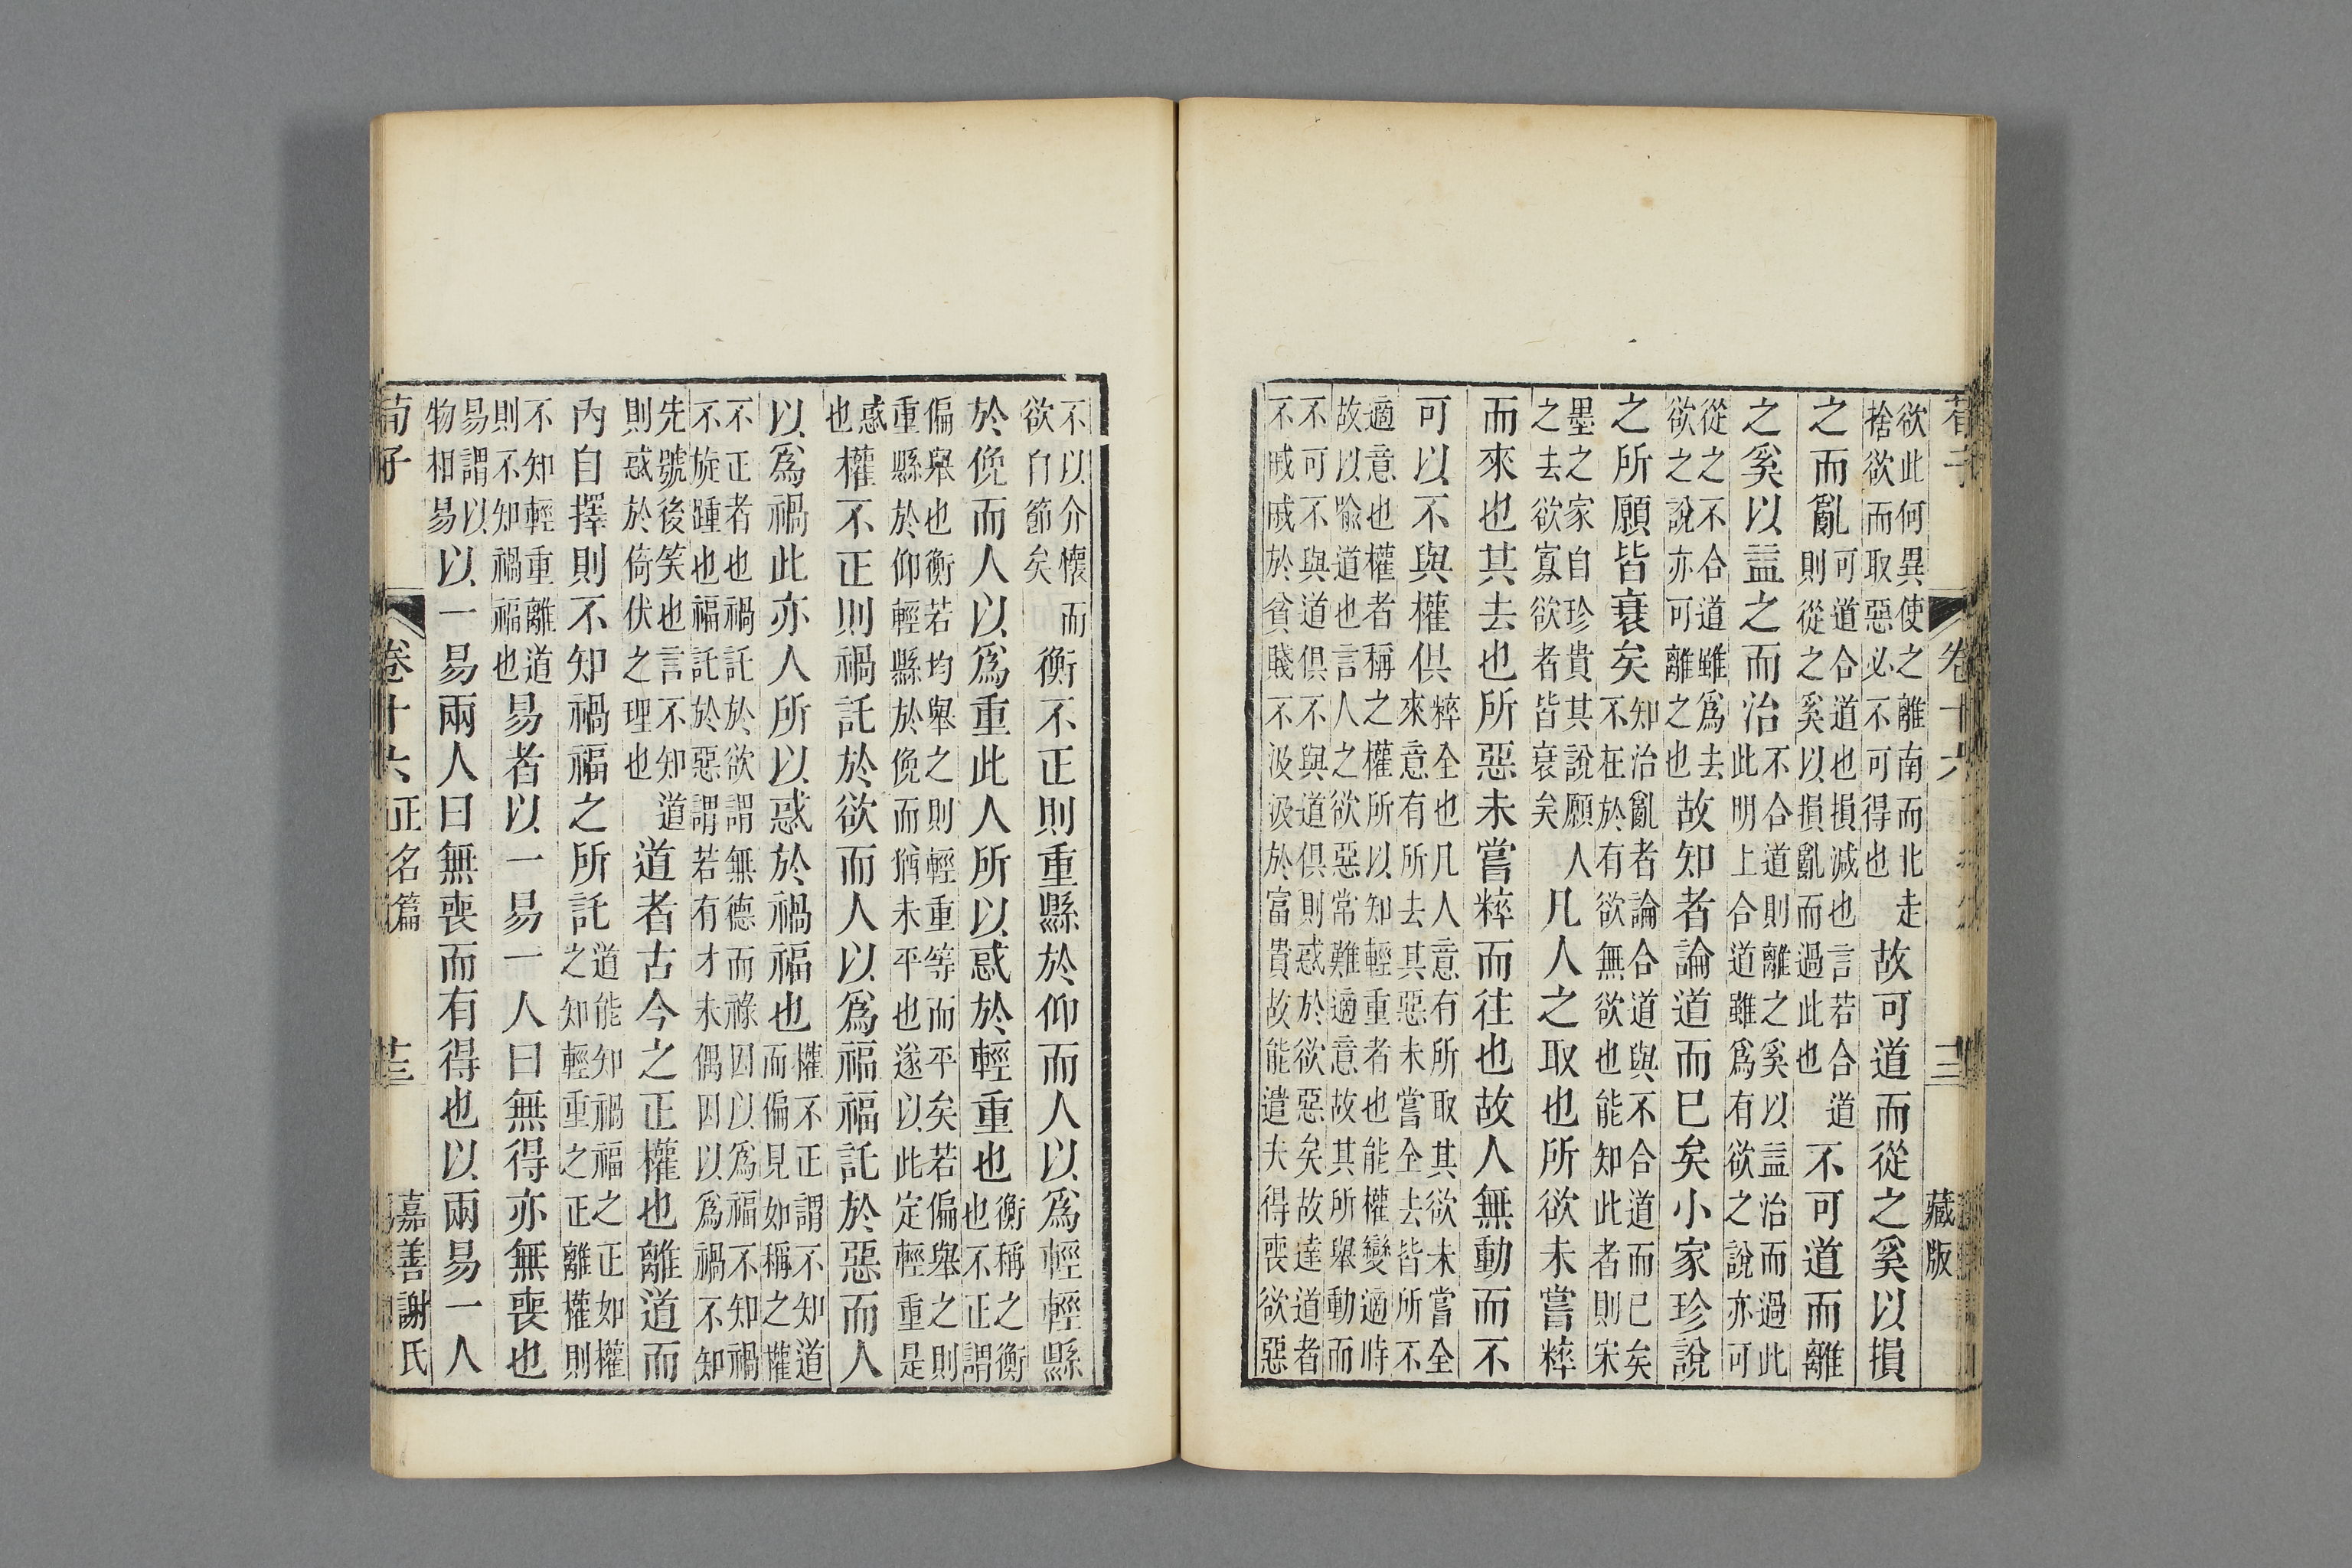 藏版
欲此何異使之離南而北走捨欲而取惡必不可得也故可道而從之奚以損
之而亂可道合道也損減也言若合道則從之奚以損亂而過此也不可道而離
之奚以益之而治不合道則離之奚以益治而過此此明上合道雖爲有欲之說亦可
從之不合道雖爲去欲之說亦可離之也故知者論道而已矣小家珍說
之所願皆衰矣知治亂者論合道與不合道而已矣不在於有欲無欲也能知此者則宋
墨之家自珍貴其說願人之去欲寡欲者皆衰矣凡人之取也所欲未嘗粹
而來也其去也所惡未嘗粹而往也故人無動而不
可以不與權俱粹全也凡人意有所取其欲未嘗全來意有所去其惡未嘗全去皆所不
適意也權者稱之權所以知輕重者也能權變適時故以喻道也言人之欲惡常難適意故其所舉動而
不可不與道俱不與道俱則惑於欲惡矣故達道者不戚戚於貧賤不汲汲於富貴故能遣夫得喪欲惡
不以介懷而欲自節矣衡不正則重縣於仰而人以爲輕輕縣
於俛而人以爲重此人所以惑於輕重也衡稱之衡也不正謂
偏舉也衡若均舉之則輕重等而平矣若偏舉之則重縣於仰輕縣於俛而猶未平也遂以此定輕重是
惑也權不正則禍託於欲而人以爲福福託於惡而人
以爲禍此亦人所以惑於禍福也權不正謂不知道而偏見如稱之權
不正者也禍託於欲謂無德而祿因以爲福不知禍不旋踵也福託於惡謂若有才未偶因以爲禍不知
先號後笑也言不知道則惑於倚伏之理也道者古今之正權也離道而
內自擇則不知禍福之所託道能知禍福之正如權之知輕重之正離權則
不知輕重離道則不知禍福也易者以一易一人曰無得亦無喪也
易謂以物相易以一易兩人曰無喪而有得也以兩易一人
荀子 卷十六正名篇 廿三 嘉善謝氏